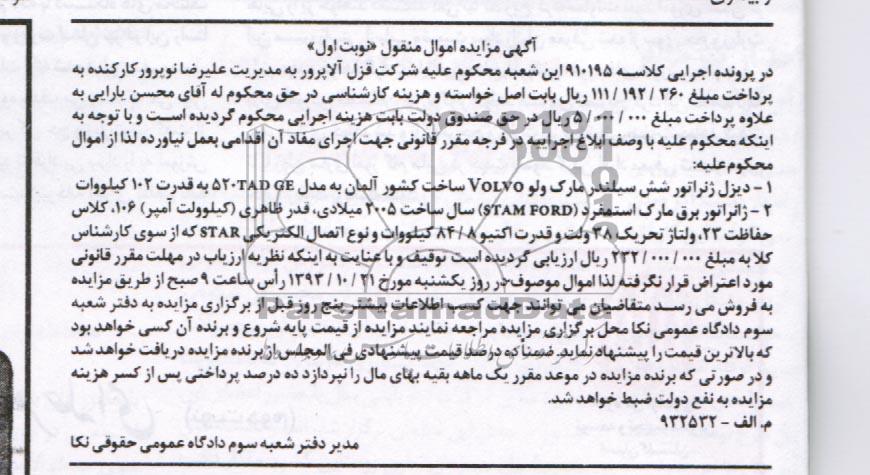 آگهی مزایده اموال منقول «نوبت اول»
در پرونده اجرایی کلاسه ۹۱۰۱۹۵ این شعبه محکوم علیه شرکت قزل آلاپرور به مدیریت علیرضا نوپرور کارکنده به
پرداخت مبلغ ۳۶۰ / ۱۹۲ / ۱۱۱ ریال بابت اصل خواسته و هزینه کارشناسی در حق محکوم له آقای محسن یارایی به
علاوه پرداخت مبلغ ۰۰۰ / ۰۰۰ / ۵ ریال در حق صندوق دولت بابت هزینه اجرایی محکوم گردیده است و با توجه به
اینکه محکوم علیه با وصف ابلاغ اجراییه در فرجه مقرر قانونی جهت اجرای مفاد آن اقدامی بعمل نیاورده لذا از اموال
محکوم علیه:
۱ - دیزل ژنراتور شش سیلندر مارک ولو VOLVO ساخت کشور آلمان به مدل ۵۲۰TAD GE به قدرت ۱۰۲ کیلووات
۲ - ژانراتور برق مارک استمفرد (STAM FORD) سال ساخت ۲۰۰۵ میلادی، قدر ظاهری (کیلوولت آمپر) ۱۰۶، کلاس
حفاظت ۲۳، ولتاژ تحریک ۲۸ ولت و قدرت اکتیو ۸ / ۸۴ کیلووات و نوع اتصال الکتریکی STAR که از سوی کارشناس
کلا به مبلغ ۰۰۰ / ۰۰۰ / ۲۳۲ ریال ارزیابی گردیده است توقیف و با عنایت به اینکه نظریه ارزیاب در مهلت مقرر قانونی
مورد اعتراض قرار نگرفته لذا اموال موصوف در روز یکشنبه مورخ ۲۱ / ۱۰ / ۱۳۹۳ رأس ساعت ۹ صبح از طریق مزایده
به فروش می رسد متقاضیان می توانند جهت کسب اطلاعات بیشتر پنج روز قبل از برگزاری مزایده به دفتر شعبه
سوم دادگاه عمومی نکا محل برگزاری مزایده مراجعه نمایند مزایده از قیمت پایه شروع و برنده آن کسی خواهد بود
که بالاترین قیمت را پیشنهاد نماید. ضمناً ده درصد قیمت پیشنهادی فی المجلس از برنده مزایده دریافت خواهد شد
و در صورتی که برنده مزایده در موعد مقرر یک ماهه بقیه بهای مال را نپردازد ده درصد پرداختی پس از کسر هزینه
مزایده به نفع دولت ضبط خواهد شد.
م. الف - ۹۳۲۵۳۳
مدیر دفتر شعبه سوم دادگاه عمومی حقوقی نکا
ParsNamadData